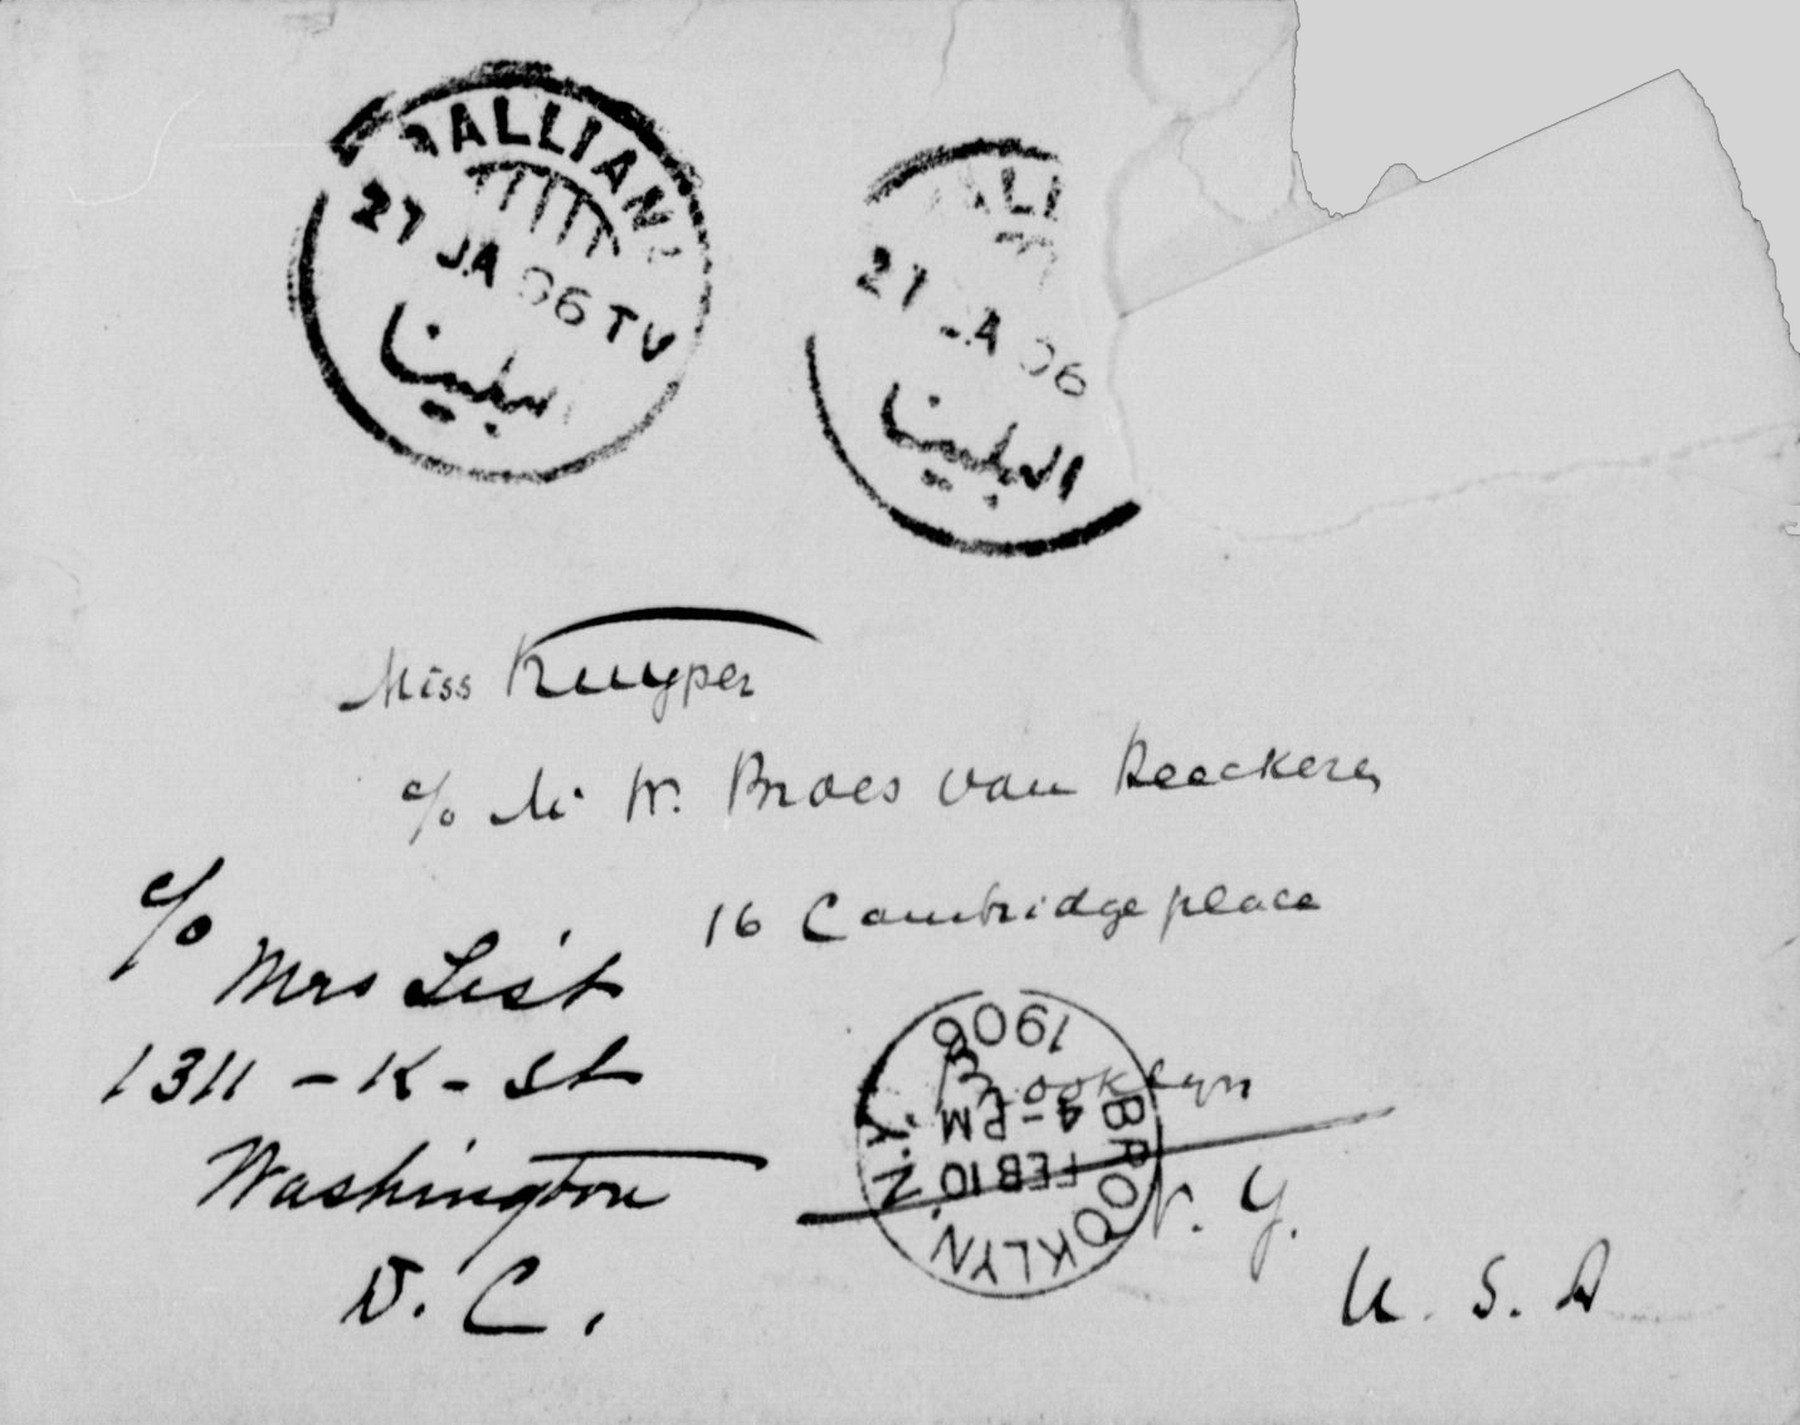 BALLIAN
27 JA 06 TV
البلينا
ALLI
27 JA 06
البلينا
Miss Kuyper
c/o Mr W. Broes van Heeckeren
16 Cambridge place
Brooklyn
N. Y.
U. S. A
c/o
Mrs List
1311 - K - St
Washington
D. C.
BROOKLYN, N.Y.
FEB 10
4 - PM
1906